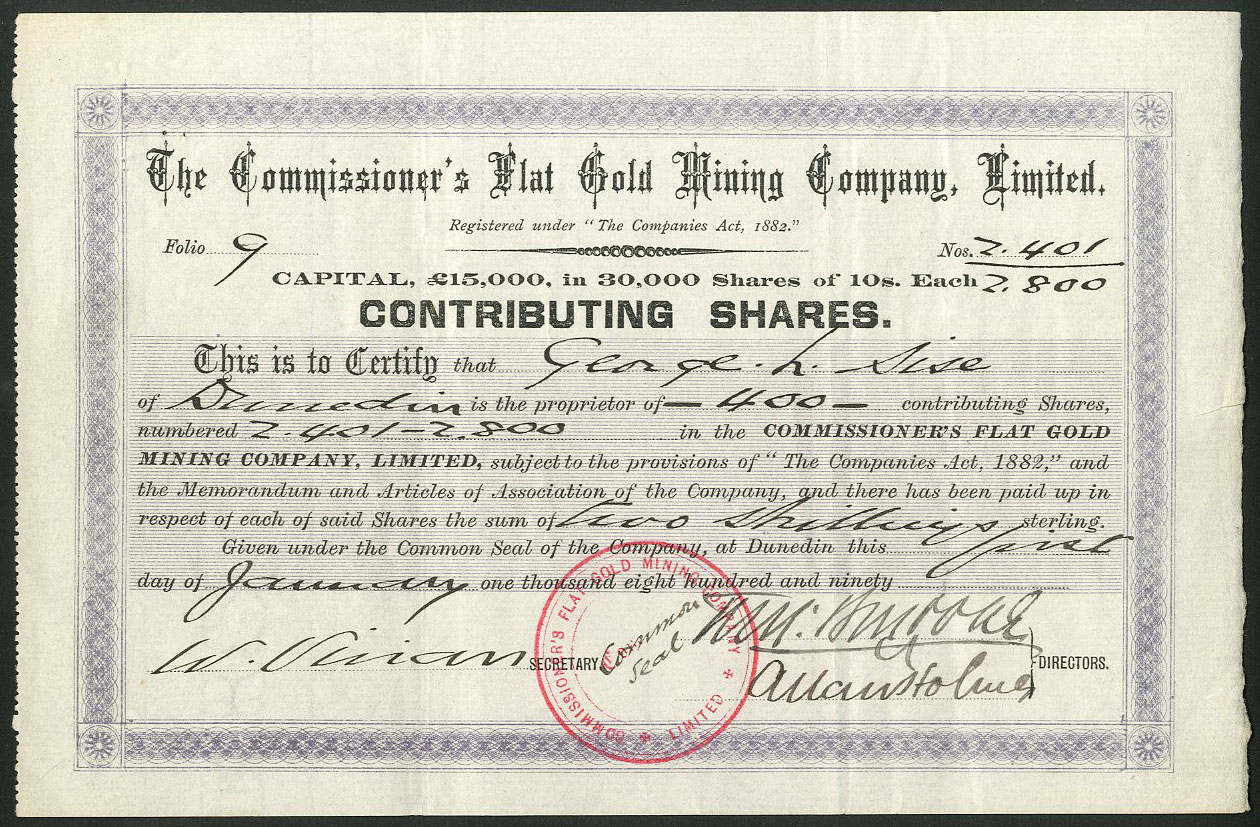 The Commissioner's Flat Gold Mining Company, Limited.
Registered under "The Companies Act, 1882."
Folio 9
Nos. 2.401
2.800
CAPITAL, £15,000, in 30,000 Shares of 10s. Each
CONTRIBUTING SHARES.
This is to Certify that George. L. Sise
of Dunedin is the proprietor of — 400 — contributing Shares,
numbered 2.401 – 2.800 in the COMMISSIONER'S FLAT GOLD
MINING COMPANY, LIMITED, subject to the provisions of "The Companies Act, 1882," and
the Memorandum and Articles of Association of the Company, and there has been paid up in
respect of each of said Shares the sum of two shillings sterling.
Given under the Common Seal of the Company, at Dunedin this first
day of January one thousand eight hundred and ninety
W. Vivian SECRETARY.
Common
Seal
COMMISSIONER'S FLAT GOLD MINING COMPANY
LIMITED
Allan Holmes
DIRECTORS.